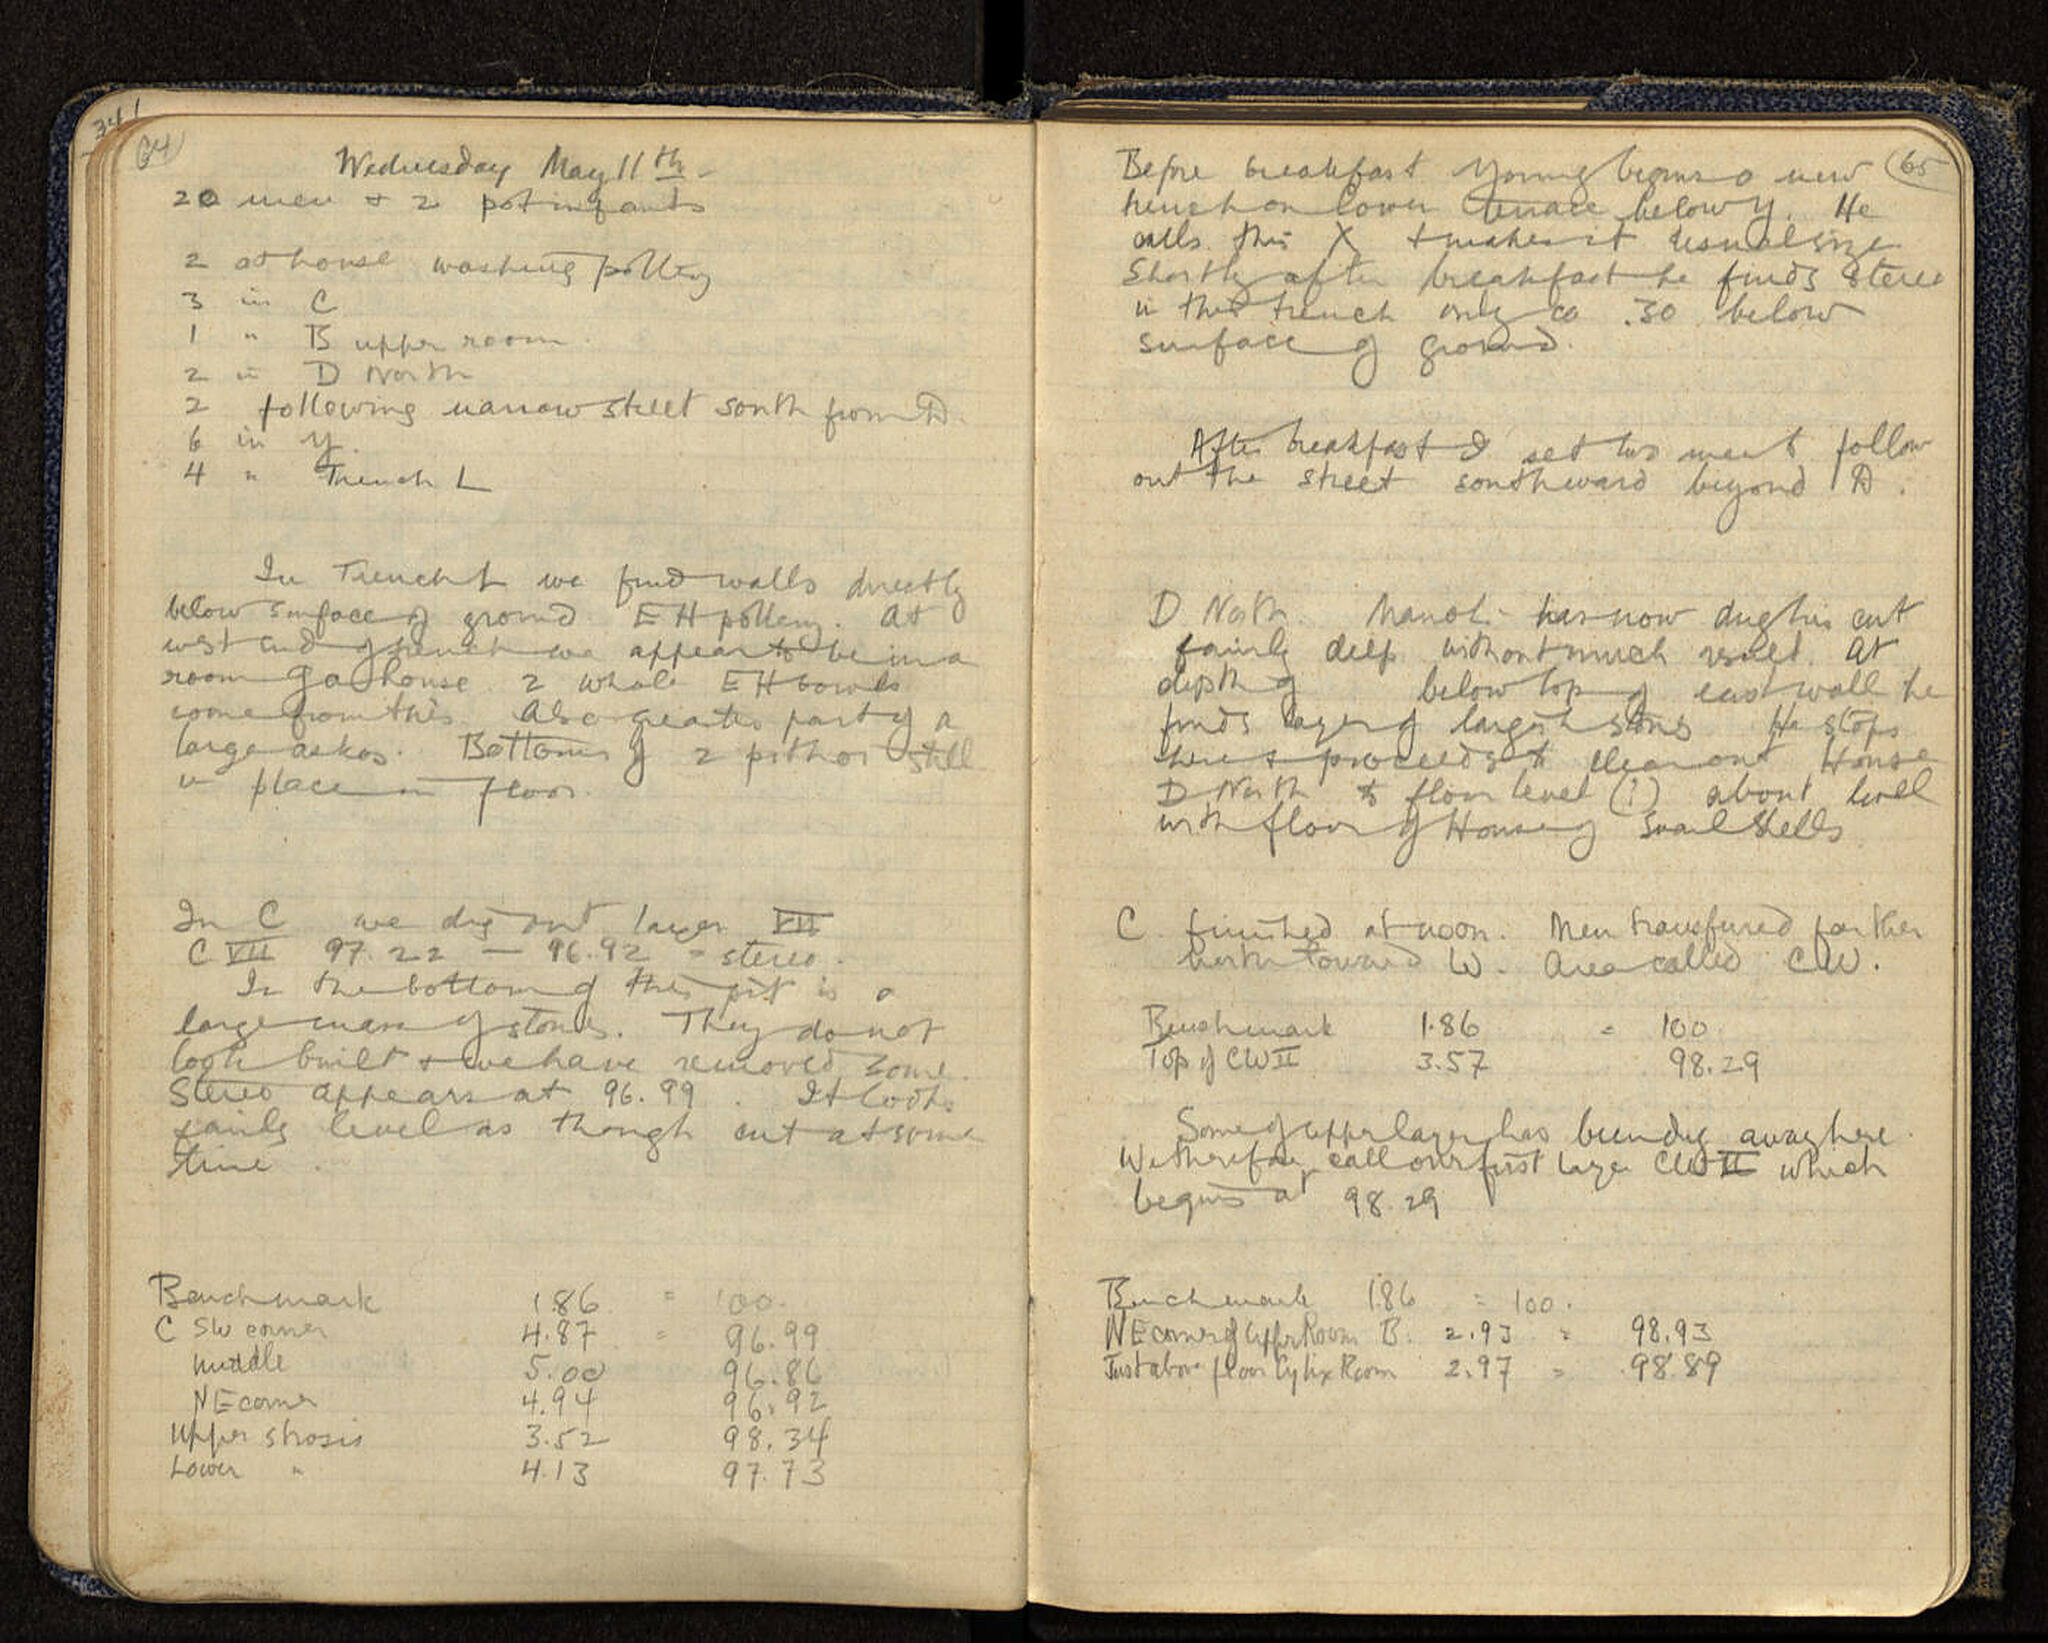 34
64
Wednesday May 11th -
20 men + 2 pot infants
2 at house washing pottery
3 in C
1 " B upper room.
2 in D North
2 following narrow street south from D.
6 in Y.
4 " Trench L
In Trench L we find walls directly
below surface of ground. EH pottery. At
west end of trench we appear to be in a
room of a house. 2 whole EH bowls
come from this. Also greater part of a
large askos. Bottoms of 2 pithoi still
in place in floor.
In C we dig out layer VII
C VII 97.22 — 96.92 = stereo.
In the bottom of this pit is a
large mass of stones. They do not
look built + we have removed some.
Stereo appears at 96.99. It looks
fairly level as though cut at some
time.
Benchmark 1.86 = 100.
C SW corner 4.87 = 96.99
middle 5.00 96.86
NE corner 4.94 96.92
Upper strosis 3.52 98.34
Lower " 4.13 97.73
65
Before breakfast Young begins a new
trench on lower terrace below Y. He
calls this X + makes it usual size.
Shortly after breakfast he finds stereo
in this trench only ca .30 below
surface of ground.
After breakfast I set two men to follow
out the street southward beyond D.
D North. Manoli has now dug his cut
fairly deep without much result. At
depth of below top of east wall he
finds layer of largish stones. He stops
here + proceeds to clear out House
D North to floor level (?) about level
with floor of House of Snail Shells
C finished at noon. Men transferred farther
north toward W. Area called CW.
Benchmark 1.86 = 100
Top of CW II 3.57 98.29
Some of upper layer has been dug away here.
We therefore call our first layer CW II which
begins at 98.29
Benchmark 1.86 = 100.
NE corner of Upper Room B. 2.93 = 98.93
Just above floor Cylix Room 2.97 = 98.89